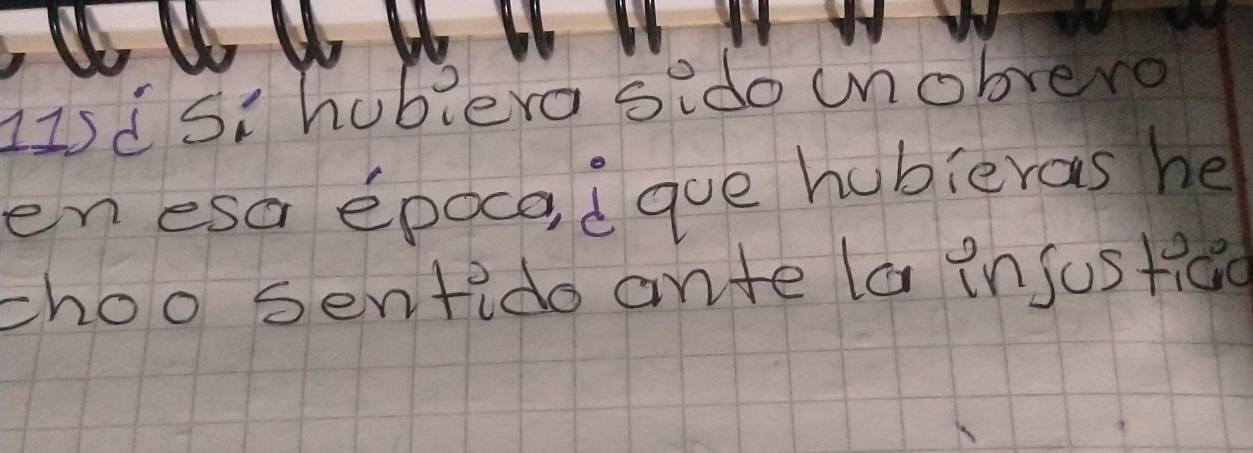 11) ¿ Si hubiera sido un obrero
en esa época, ¿ que hubieras he
choo sentido ante la injusticia